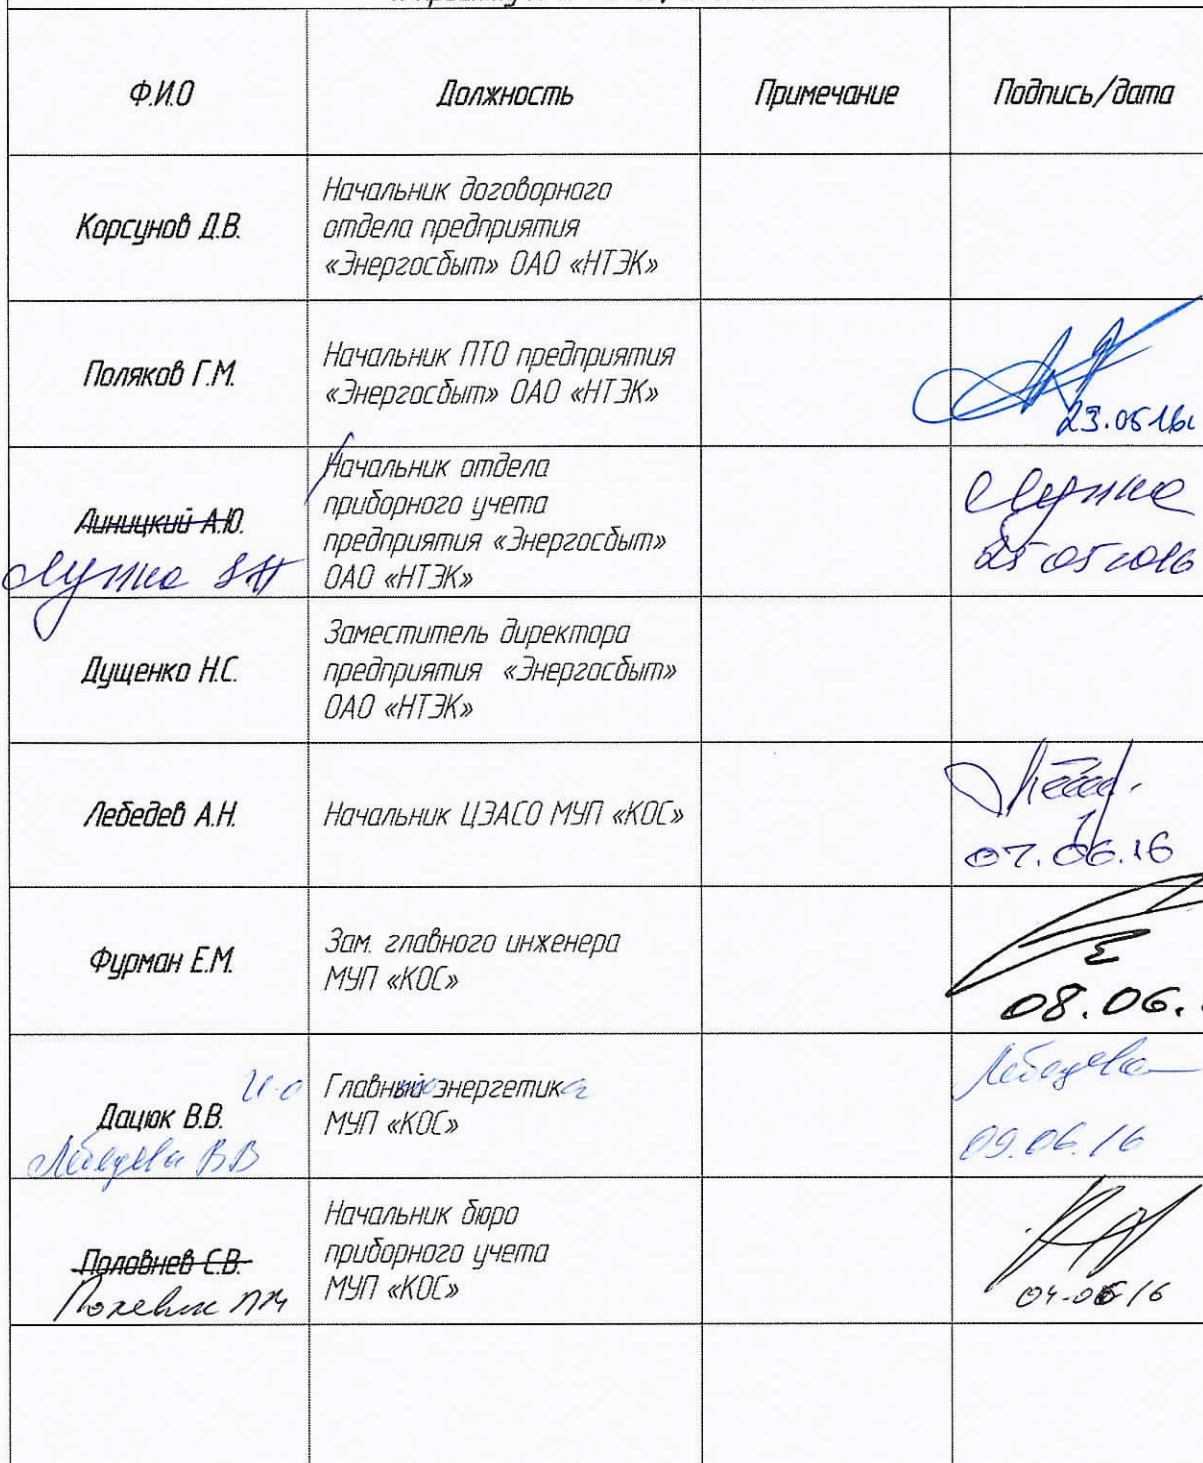 Ф.И.О
Должность
Примечание
Подпись/дата
Корсунов Д.В.
Начальник договорного
отдела предприятия
«Энергосбыт» ОАО «НТЭК»
Поляков Г.М.
Начальник ПТО предприятия
«Энергосбыт» ОАО «НТЭК»
23.05.16г
Линицкий А.Ю.
Начальник отдела
приборного учета
предприятия «Энергосбыт»
ОАО «НТЭК»
25 05 2016
Дущенко Н.С.
Заместитель директора
предприятия «Энергосбыт»
ОАО «НТЭК»
Лебедев А.Н.
Начальник ЦЭАСО МУП «КОС»
07.06.16
Фурман Е.М.
Зам. главного инженера
МУП «КОС»
08.06.
Дацюк В.В.
И.о
Лебедева ВВ
Главного энергетика
МУП «КОС»
Лебедева
09.06.16
Половнев С.В.
Начальник бюро
приборного учета
МУП «КОС»